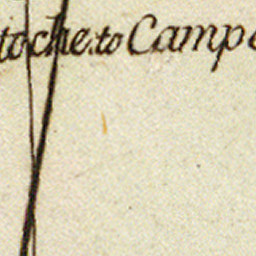 toche to Camp